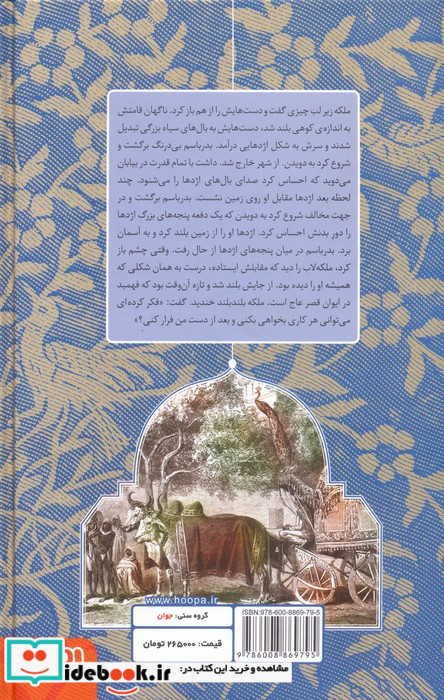 ملکه زیر لب چیزی گفت و دست‌هایش را از هم باز کرد. ناگهان قامتش
به اندازه‌ی کوهی بلند شد، دست‌هایش به بال‌های سیاه بزرگی تبدیل
شدند و سرش به شکل اژدهایی درآمد. بدرباسم بی‌درنگ برگشت و
شروع کرد به دویدن. از شهر خارج شد. داشت با تمام قدرت در بیابان
می‌دوید که احساس کرد صدای بال‌های اژدها را می‌شنود. چند
لحظه بعد اژدها مقابل او روی زمین نشست. بدرباسم برگشت و در
جهت مخالف شروع کرد به دویدن که یک دفعه پنجه‌های بزرگ اژدها
را دور بدنش احساس کرد. اژدها او را از زمین بلند کرد و به آسمان
برد. بدرباسم در میان پنجه‌های اژدها از حال رفت. وقتی چشم باز
کرد، ملکه‌لاب را دید که مقابلش ایستاده، درست به همان شکلی که
همیشه او را دیده بود. از جایش بلند شد و تازه آن‌وقت بود که فهمید
در ایوان قصر عاج است. ملکه بلندبلند خندید. گفت: «فکر کرده‌ای
می‌توانی هر کاری بخواهی بکنی و بعد از دست من فرار کنی؟»
www.hoopa.ir
گروه سنی: جوان
قیمت: ۲۶۵۰۰۰ تومان
ISBN: 978-600-8869-79-5
9 786008 869795
مشاهده و خرید این کتاب در:
idebook.ir